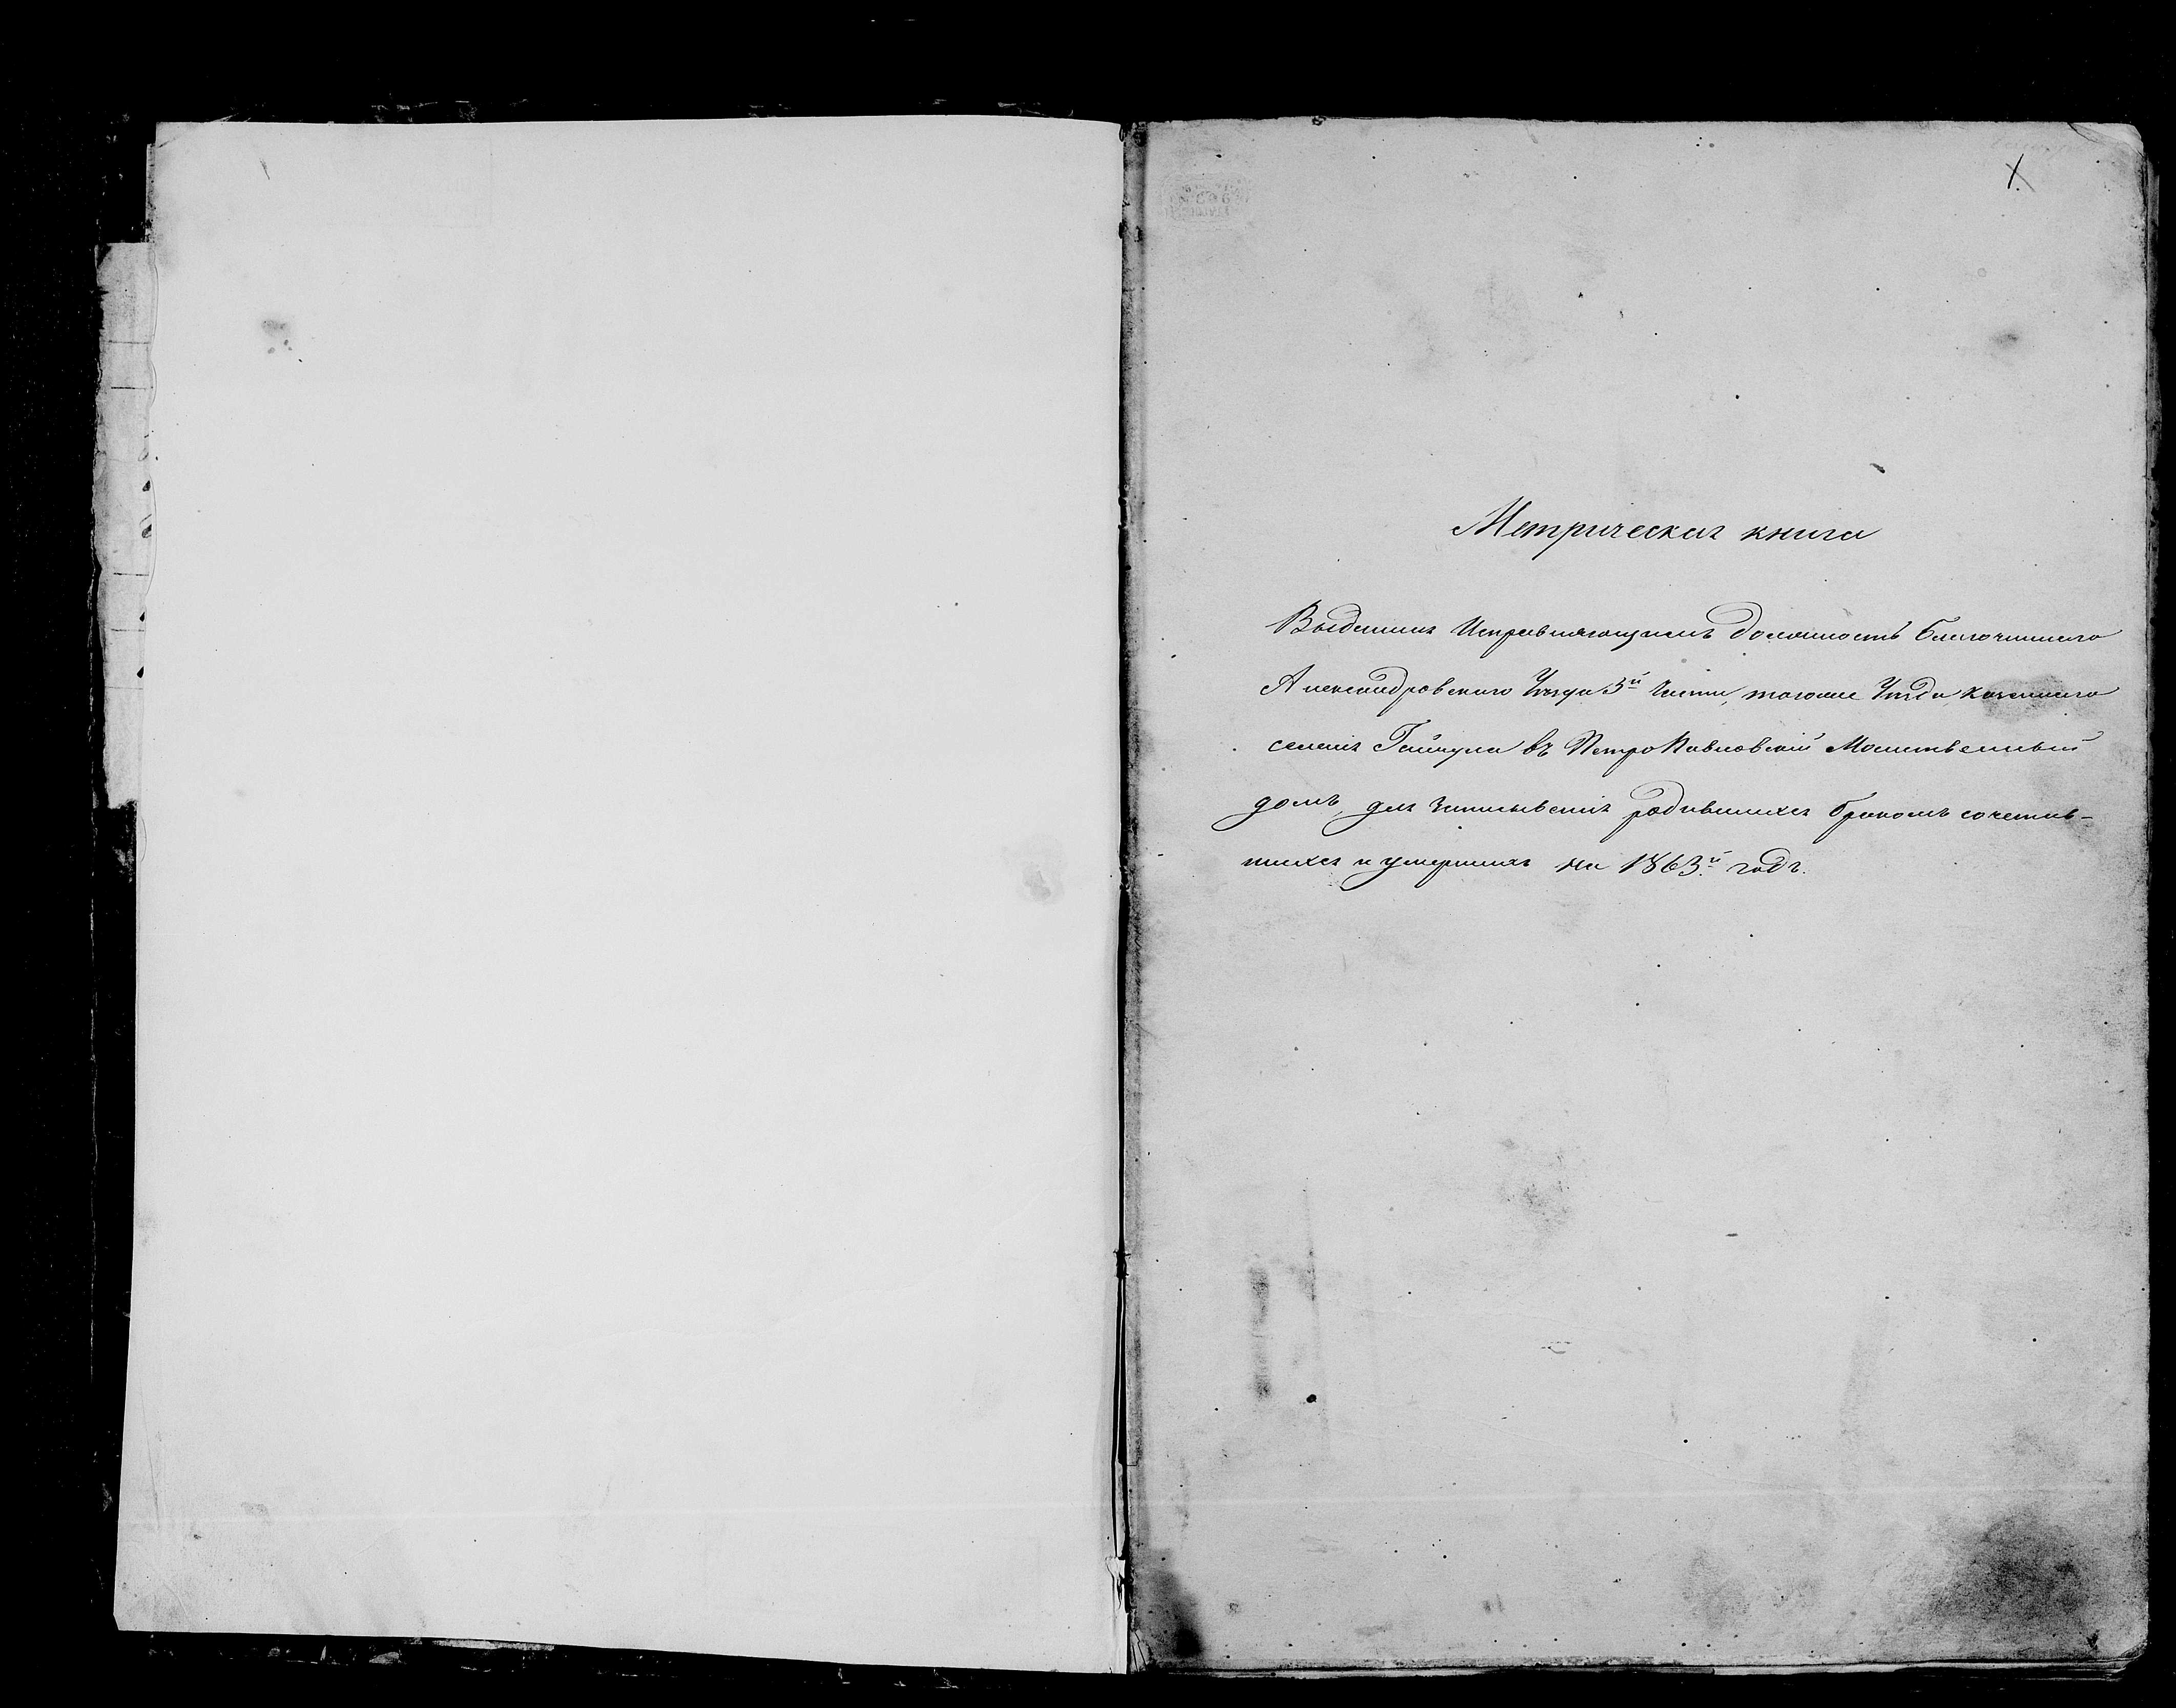 1.
Метрическая книга
Выданная Исправляющимъ должность благочиннаго
Александровскаго Уѣзда 3й части, тогоже Уѣзда, казеннаго
селенія Гайчула въ ПетроПавловскій Молитвенный
домъ, для записыванія родившихся бракомъ сочетав-
шихся и умершихъ на 1863й годъ.